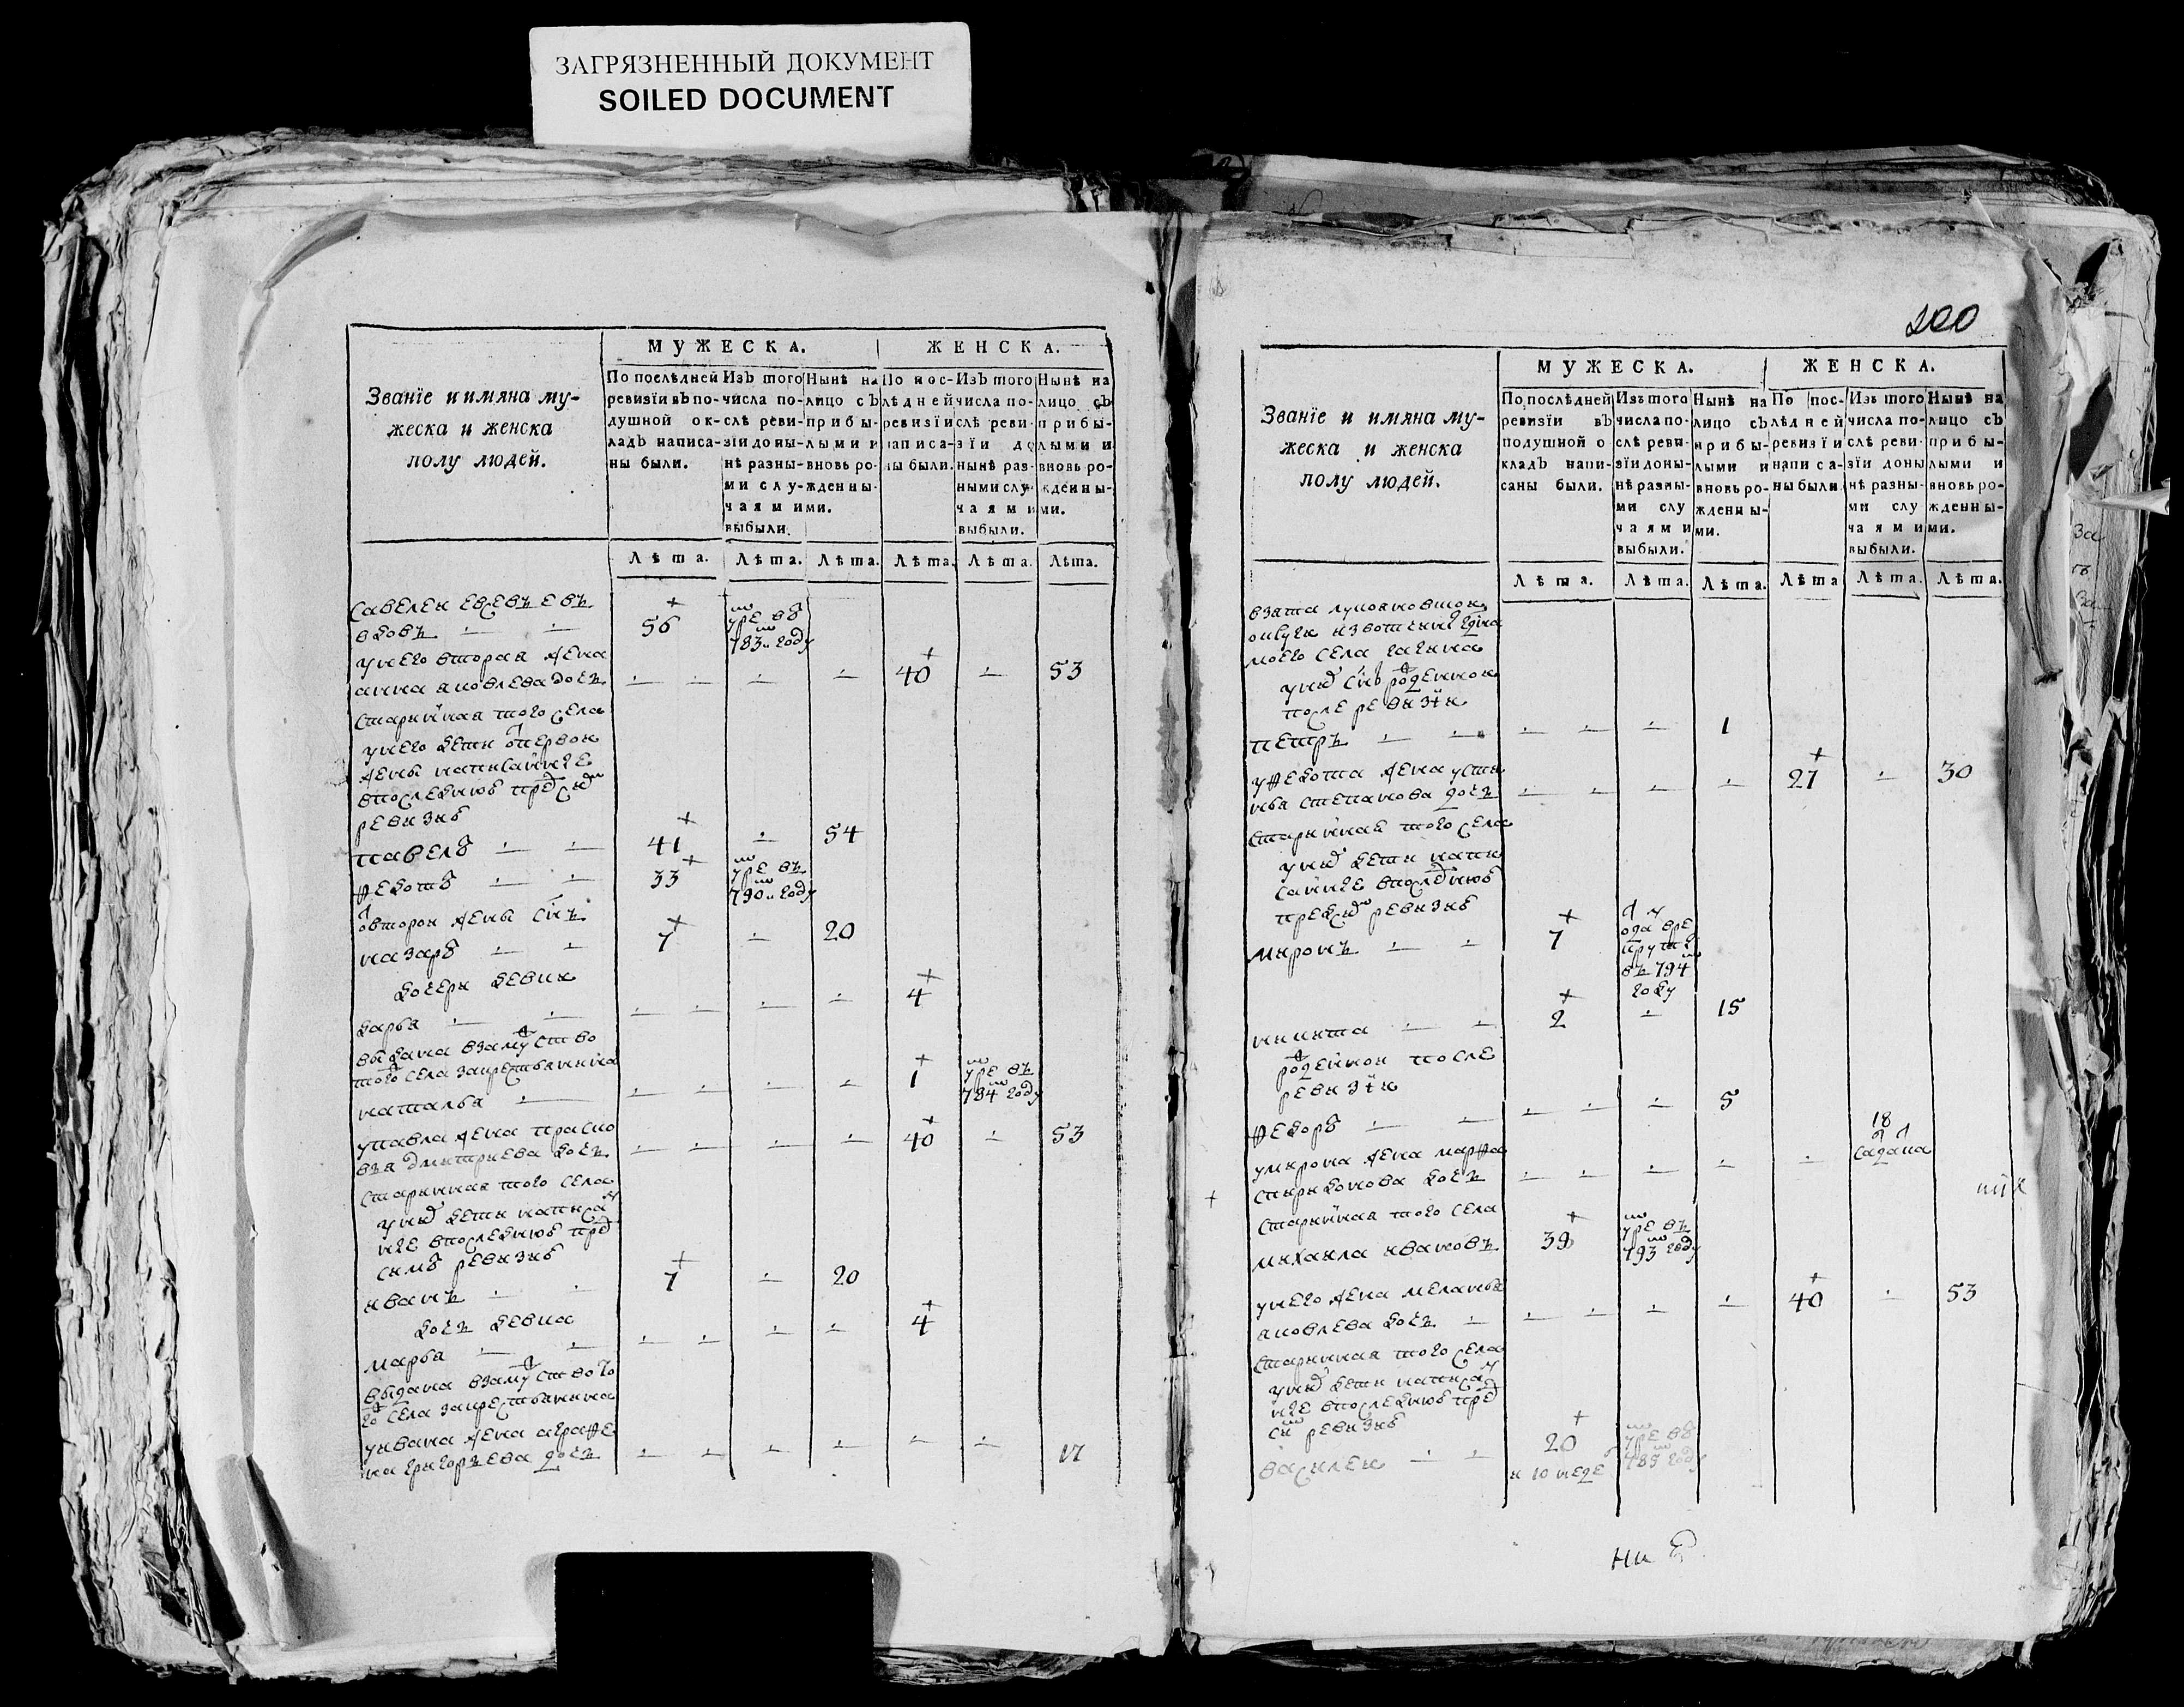 ЗАГРЯЗНЕННЫЙ ДОКУМЕНТ
SOILED DOCUMENT
МУЖЕСКА. ЖЕНСКА.
Званїе и имяна му-
жеска и женска
полу людей.
По послѣдней
ревизїи въ по-
душной ок-
ладъ написа-
ны были.
Изъ того
числа по-
слѣ реви-
зїи доны-
нѣ разны-
ми слу-
чаями
выбыли.
Нынѣ на
лицо съ
прибы-
лыми и
вновь ро-
жденны-
ми.
По пос-
лѣдней
ревизїи
написа-
ны были.
Изъ того
числа по-
слѣ реви-
зїи до
нынѣ раз-
ными слу-
чаями
выбыли.
Нынѣ на
лицо съ
прибы-
лыми и
вновь ро-
жденны-
ми.
Лѣта. Лѣта. Лѣта. Лѣта. Лѣта. Лѣта.
савелеи евсевъевъ
вдовъ 56 умре въ
783м году
унего вторая жена
анна яковлева дочь 40 53
стариннаѧ того села
унего дети отпервои
жены написанные
впоследнюю предсию
ревизию
павелъ 41 54
федотъ 33 умре въ
790м году
отвторои жены сынъ
назаръ 7 20
дочери девки
дарья 4
выдана взамужство
того села закрестьянина
наталья 1 умре въ
784м году
упавла жена праско
вья дмитриева дочь 40 53
стариннаѧ того села
уних дети написан
ные впоследнюю пред
сию ревизию
иванъ 7 20
дочь девка
марья 4
выдана взамужство то
го села закрестьянина
уивана жена аграфе
на григорьева дочь 17
200
МУЖЕСКА. ЖЕНСКА.
Званїе и имяна му-
жеска и женска
полу людей.
По послѣдней
ревизїи въ
подушной о
кладъ напи-
саны были.
Изъ того
числа по-
слѣ реви-
зїи доны-
нѣ разны-
ми слу
чаями
выбыли.
Нынѣ на
лицо съ
прибы-
лыми и
вновь ро-
жденны-
ми.
По пос-
лѣдней
ревизїи
написа-
ны были.
Изъ того
числа по-
слѣ реви-
зїи доны
нѣ разны-
ми слу
чаями
выбыли.
Нынѣ на
лицо съ
прибы-
лыми и
вновь ро-
жденны-
ми.
Лѣта. Лѣта. Лѣта. Лѣта Лѣта. Лѣта.
взята
моего села
уних сынъ рожденнои
после ревизїи
петръ 1
уфедота жена усти
нья степанова дочь 27 30
стариннаѧ того села
уних дети напи
санные впоследнюю
предсию ревизию
миронъ 7 отдан
врекруты
въ 794м
году
никита 2 15
рожденнои после
ревизїи
федоръ 5
умирона жена марфа 18
спиридонова дочь
стариннаѧ того села
михаила ивановъ 39 умре въ
793м году
унего жена меланья
яковлева дочь 40 53
стариннаѧ того села
уних дети написан
ные впоследнюю пред
сию ревизию
василеи 20 умре въ
785 году
и 10 неде